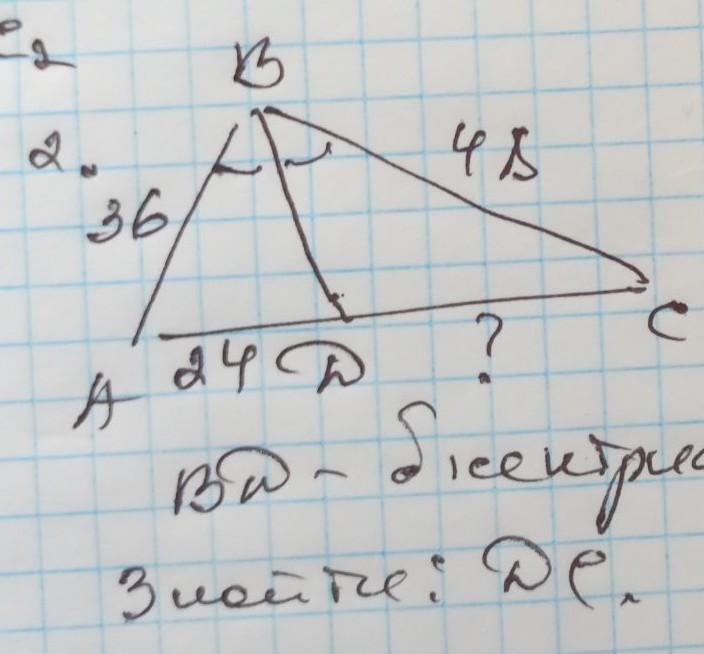 2.
B
36
48
A
24
D
?
C
BD - бісектриса
Знайти: DC.